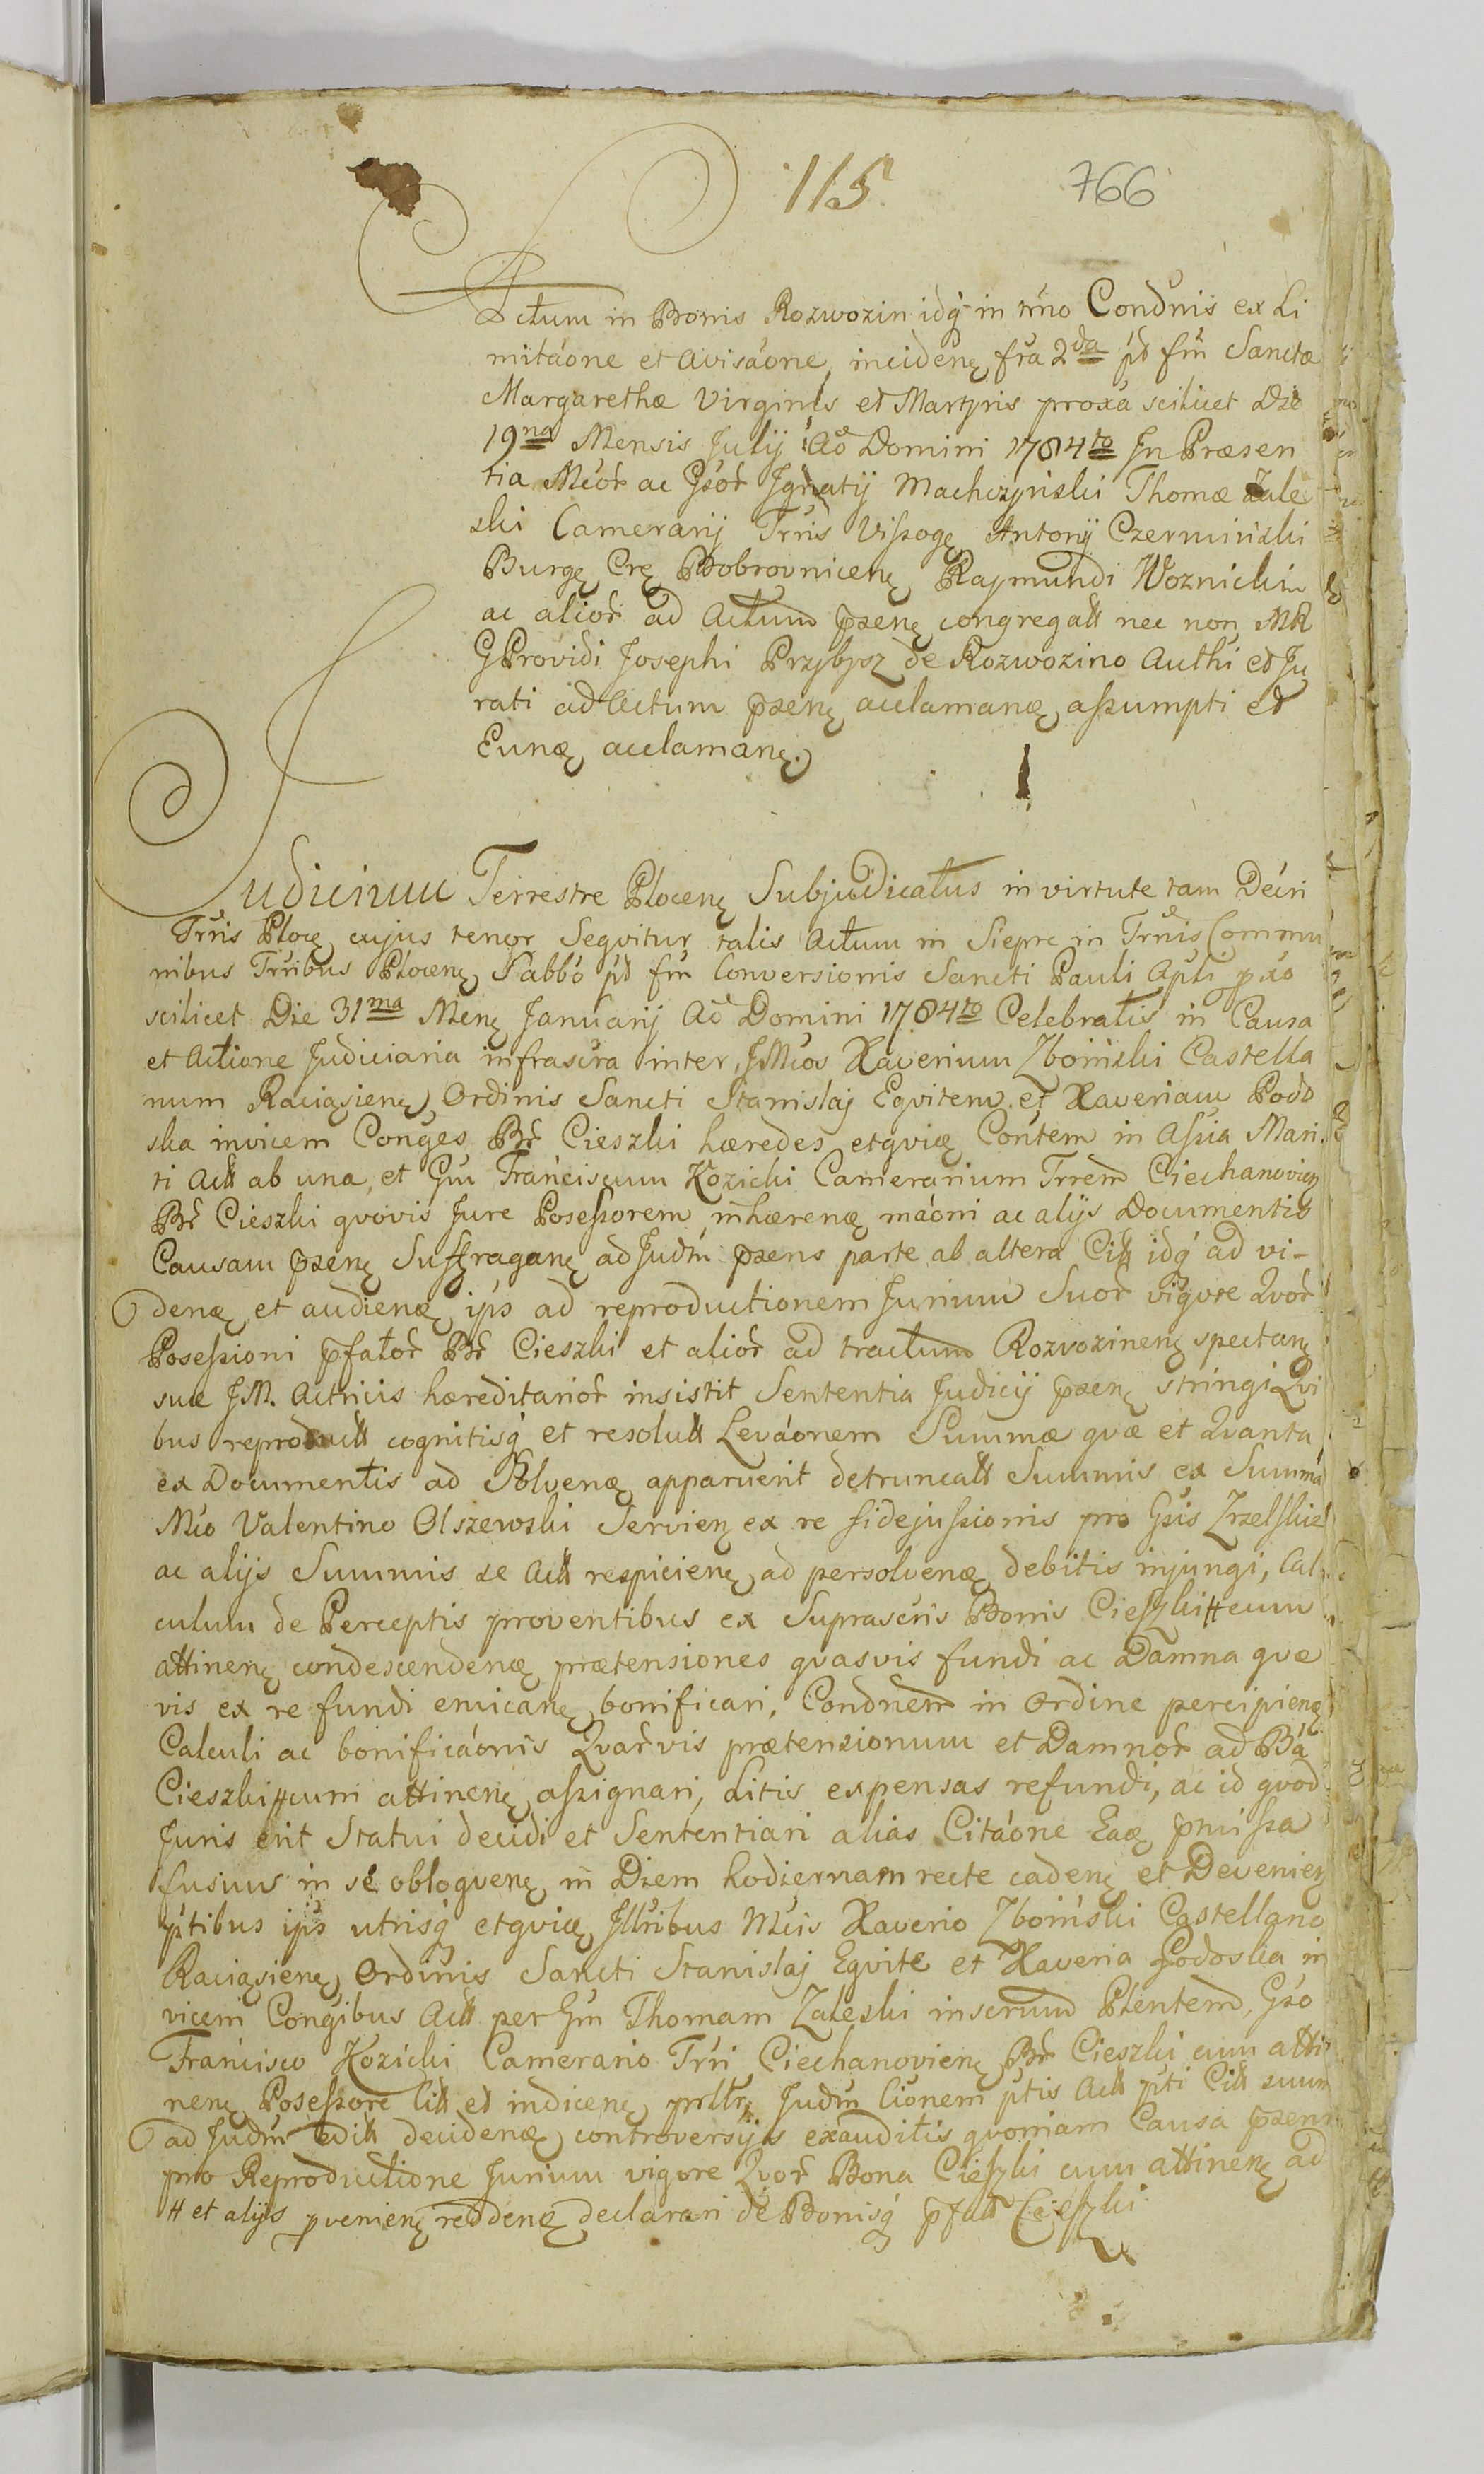 115.
766
Actum in Bonis Rozwozin idq in tmo Condnis ex Li
mitaone et avisaone, inciden, fra 2da pt fm Sanctæ
Margarethæ Virginis et Martyris proxa scilicet Die
19na Mensis Julij Ao Domini 1784to In Præsen
tia Mcor ac Gsor Ignatij Machczynski Thomæ Zale
ski Camerarij Trris Viszog, Antonij Czerminski
Burg, Cre, Bobrovnicen, Rajmundi Woznicki
ac alior ad Actum pzen, congregatt nec non MR
G Providi Josephi Przybysz de Rozwozino Authi et Ju
rati ad Actum pzen, acclaman, assumpti et
Eunæ, acclaman,.
Judicium Terrestre Plocen, Subjudicatus in virtute tam Decri
Trris Ploc, cujus tenor Seqvitur talis Actum in Sierpc in Trris Commu
nibus Trribus Plocen, Sabbo pt fm Conversionis Sancti Pauli Apli pxo
scilicet Die 31ma Men, Januarij Ao Domini 1784to Celebratis in Causa
et Actione Judiciaria infrascra inter JMcos Xaverium Zboinski Castella
num Raciązien, Ordinis Sancti Stanislaj Eqvitem et Xaveriam Podo
ska invicem Conges Br Cieszki hæredes etqvic, Contem in Assia Mari
ti Actt ab una, et Gm Franciscum Kozicki Camerarium Trrem Ciechanovien,
Br Cieszki qvovis Jure Posessorem inhæren, maoni ac alijs Documentis
Causam pzen, Suffragan, ad Judm pzens parte ab altera Citt idq ad vi-
den, et audien, ips ad reproductionem Jurium Suor vigore Qvor
Posessioni pfator Br Cieszki et alior ad tractum Rozvozinen, spectan,
suæ JM. Actricis hæreditarior insistit Sententia Judicij pzen, stringi Qvi
bus reproductt cognitisq et resolutt Levaonem Summæ qvæ et Qvanta
ex Documentis ad Solven, apparuerit detruncatt Summis ex Summa
Mco Valentino Olszewski Servien, ex re fidejussionis pro Gsis Zrzelskie
ac alijs Summis se Actt respicien, ad persolven, debitis injungi, Cal
culum de Perceptis proventibus ex Suprascris Bonis Cieszki # cum
attinen, condescenden, prætensiones qvasvis fundi ac Damna qvæ
vis ex re fundi emican, bonificari, Condnem in Ordine percipien,
Calculi ac bonificaonis Qvarvis prætensionum et Damnor ad Ba
Cieszki # cum attinen, assignari, Litis expensas refundi, ac id qvod
Juris erit Statui decidi et Sententiari alias Citaone Ea, pmissa
fusius in se obloqven, in Diem hodiernam recte caden, et Devenien,
ptibus ips utrisq etqvic, Jllribus Mcis Xaverio Zboinski Castellano
Raciązien, Ordinis Sancti Stanislaj Eqvite et Xaveria Podoska in
vicem Congibus Actt per Gm Thomam Zaleski inscrum Plentem, Gso
Francisco Kozicki Camerario Trri Ciechanovien, Br Cieszki cum atti
nen, Posessore Citt et indicen, prlr, Judm Cionem ptis Actt pti Citt suum
ad Judm edit deciden, controversijs exauditis qvoniam Causa pzens
pro Reproductione Jurium vigore Qvor Bona Cieszki cum attinen, ad
# et alijs pvenien, redden, declarari de Bonisq pfatt Cieszki